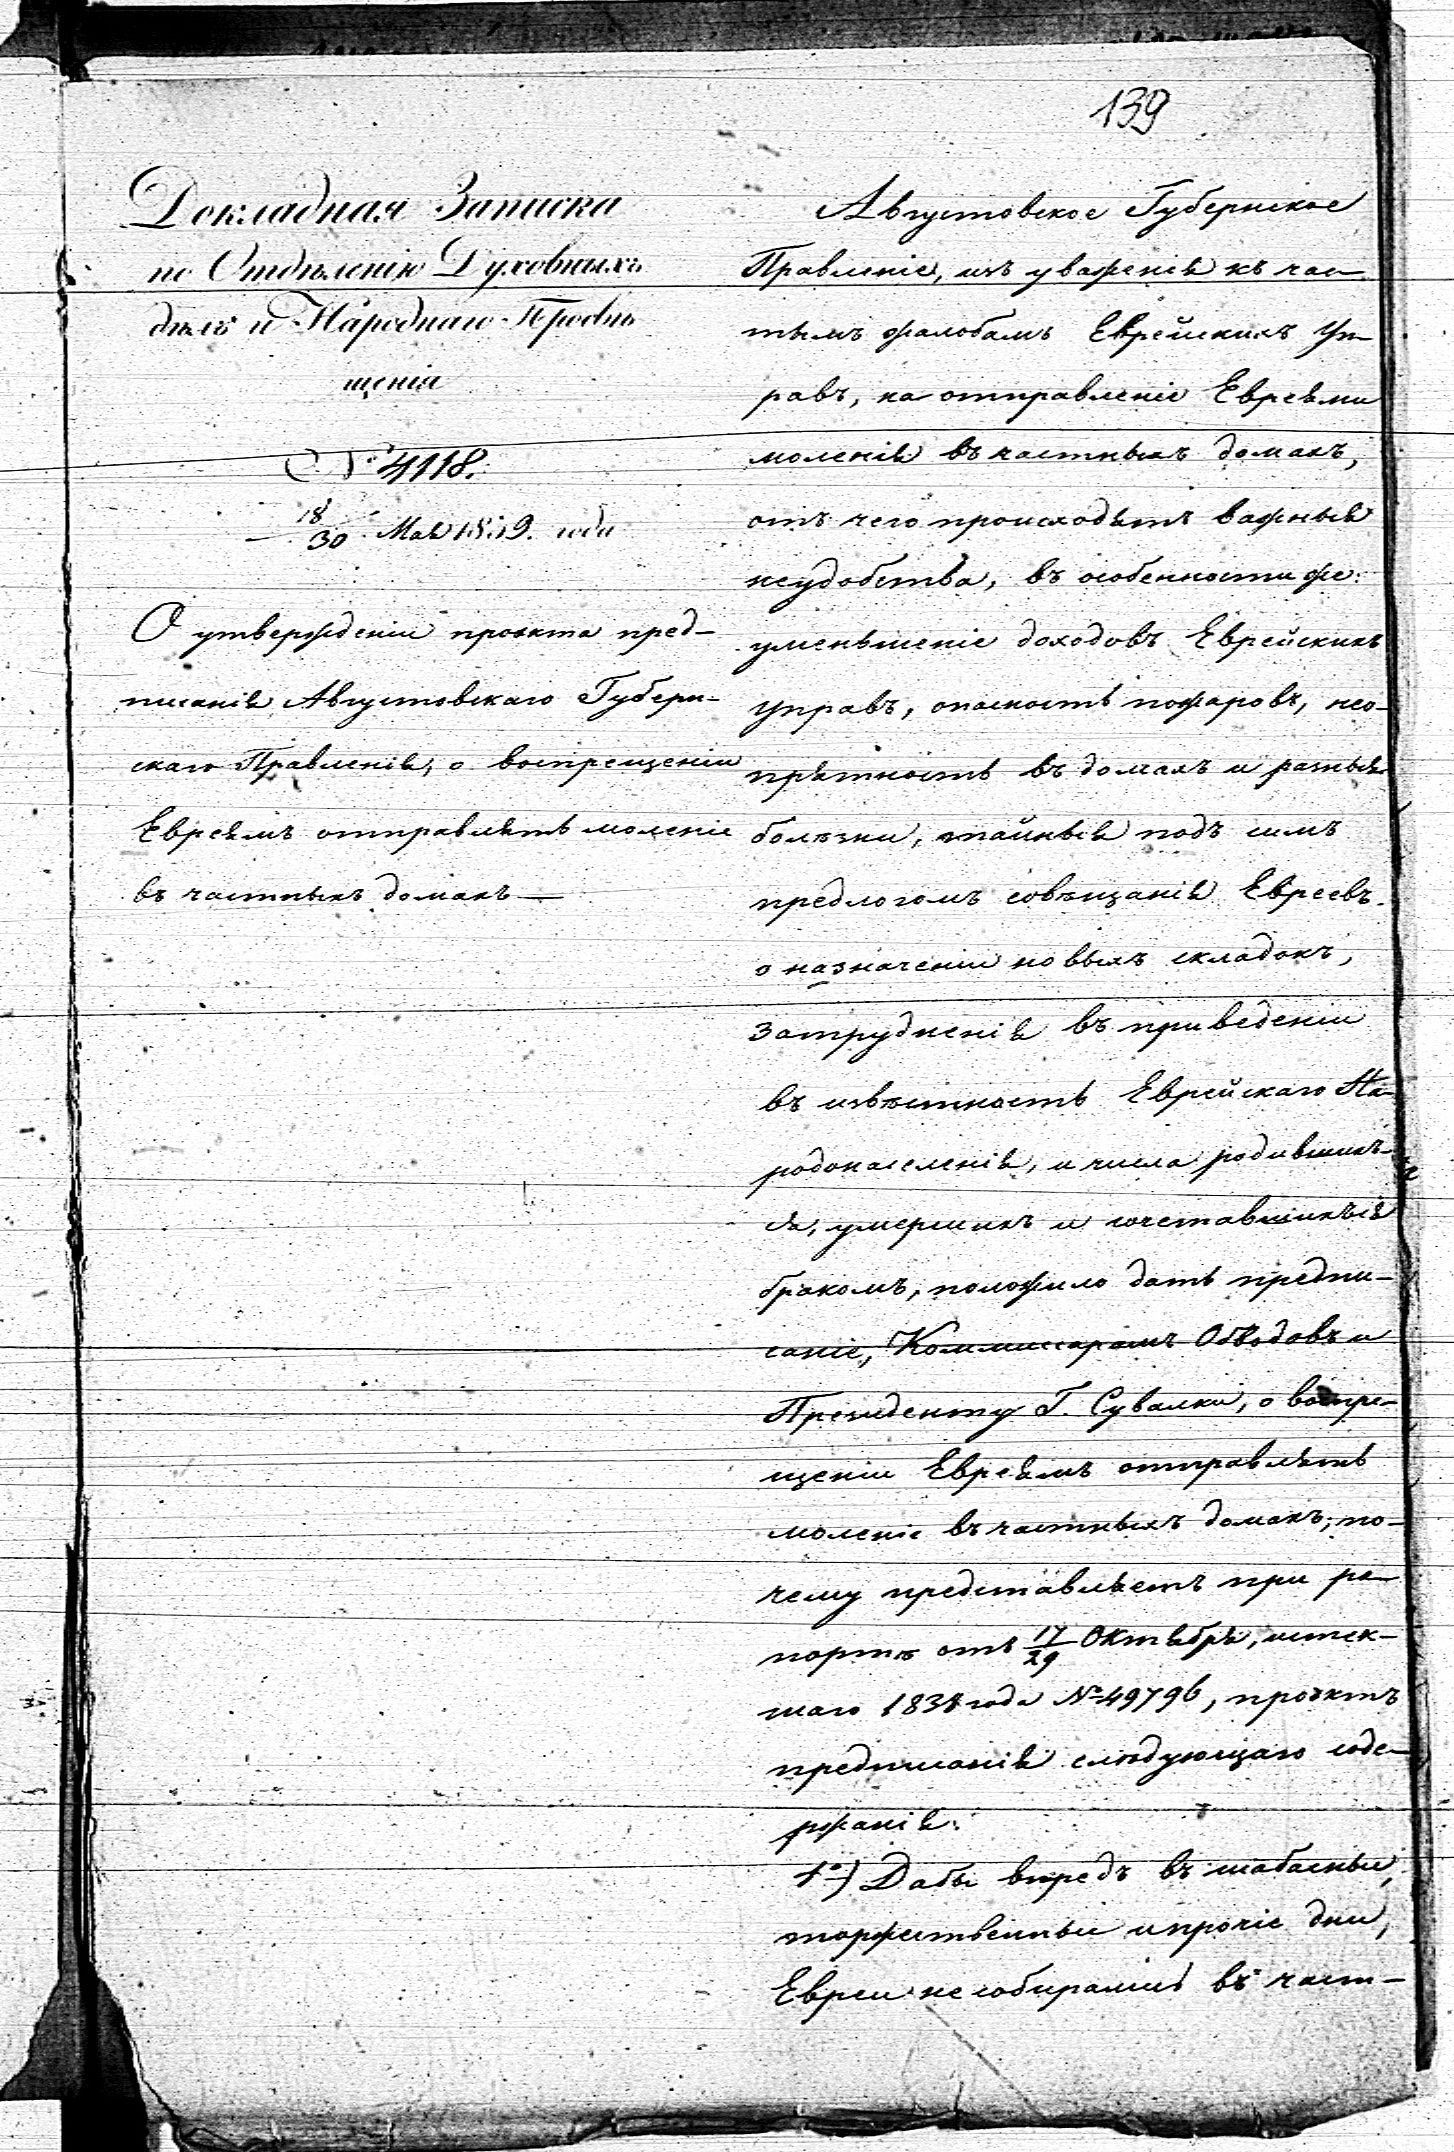 139
Докладная Записка
по Отдѣленію Духовныхъ
дѣлъ и Народнаго Просвѣ
щенія
№ 4118.
18/30 Мая 1839. года
О утвержденіи проэкта пред-
писанія Августовскаго Губерн-
скаго Правленія, о воспрещеніи
Евреямъ отправлять моленіе
въ частныхъ домахъ —
Августовское Губернское
Правленіе, изъ уваженія къ час-
тымъ жалобамъ Еврейскихъ Уп-
равъ, на отправленіе Евреями
моленія въ частныхъ домахъ,
отъ чего происходятъ важныя
неудобства, въ особенности же:
уменьшеніе доходовъ Еврейскихъ
Управъ, опасность пожаровъ, нео-
прятность въ домахъ и разныя
болѣзни, тайныя подъ симъ
предлогомъ совѣщанія Евреевъ
о назначеніи новыхъ складокъ,
затрудненія въ приведеніи
въ извѣстность Еврейскаго На-
родонаселенія, и числа родившихъ-
ся, умершихъ и сочетавшихъся
бракомъ, положило дать предпи-
саніе, Коммиссарамъ Обводовъ и
Президенту Г. Сувалки, о воспре-
щеніи Евреямъ отправлять
моленіе въ частныхъ домахъ; по-
чему представляетъ при ра-
портѣ отъ 17/29 Октября, истек-
шаго 1838 года № 49796, проэктъ
предписанія слѣдующаго соде-
ржанія:
1º) Дабы впредъ въ шабасные,
торжественные и прочіе дни,
Евреи не собирались въ част-